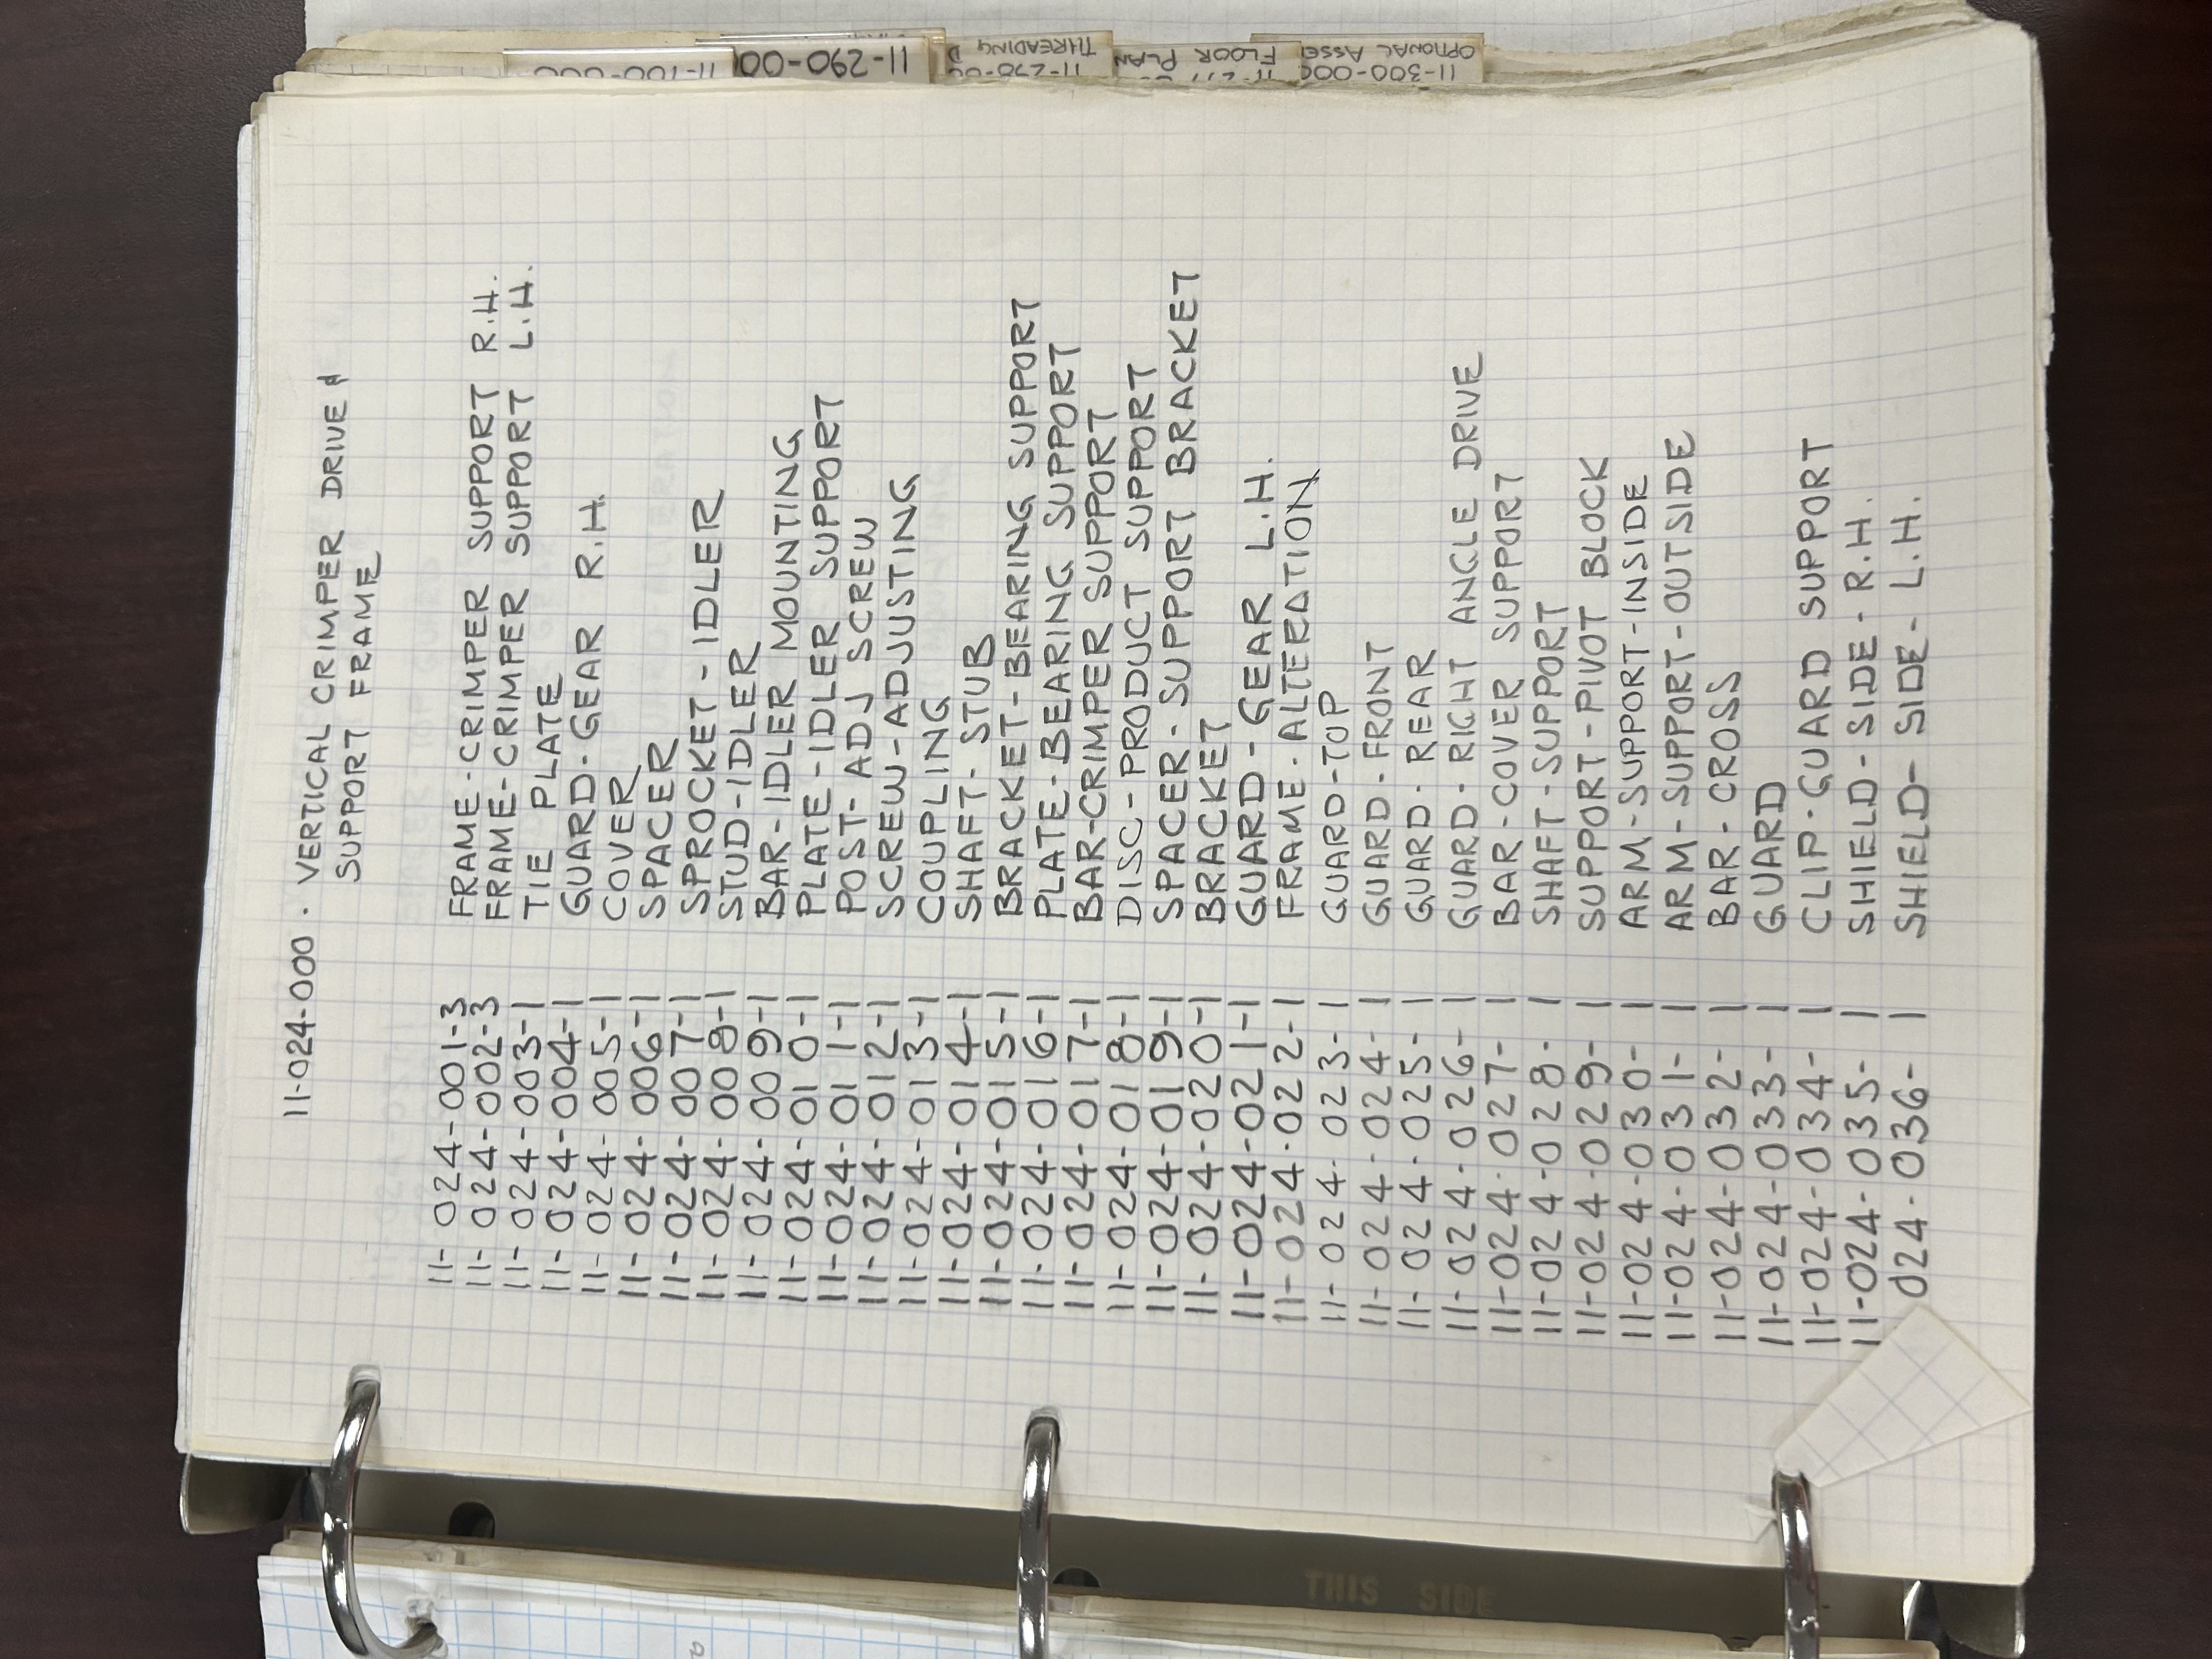 11-024-000 · VERTICAL CRIMPER DRIVE &
SUPPORT FRAME
11-024-001-3 FRAME-CRIMPER SUPPORT R.H.
11-024-002-3 FRAME-CRIMPER SUPPORT L.H.
11-024-003-1 TIE PLATE
11-024-004-1 GUARD-GEAR R.H.
11-024-005-1 COVER
11-024-006-1 SPACER
11-024-007-1 SPROCKET-IDLER
11-024-008-1 STUD-IDLER
11-024-009-1 BAR-IDLER MOUNTING
11-024-010-1 PLATE-IDLER SUPPORT
11-024-011-1 POST-ADJ SCREW
11-024-012-1 SCREW-ADJUSTING
11-024-013-1 COUPLING
11-024-014-1 SHAFT-STUB
11-024-015-1 BRACKET-BEARING SUPPORT
11-024-016-1 PLATE-BEARING SUPPORT
11-024-017-1 BAR-CRIMPER SUPPORT
11-024-018-1 DISC-PRODUCT SUPPORT
11-024-019-1 SPACER-SUPPORT BRACKET
11-024-020-1 BRACKET
11-024-021-1 GUARD-GEAR L.H.
11-024-022-1 FRAME-ALTERATION
11-024-023-1 GUARD-TOP
11-024-024-1 GUARD-FRONT
11-024-025-1 GUARD-REAR
11-024-026-1 GUARD-RIGHT ANGLE DRIVE
11-024-027-1 BAR-COVER SUPPORT
11-024-028-1 SHAFT-SUPPORT
11-024-029-1 SUPPORT-PIVOT BLOCK
11-024-030-1 ARM-SUPPORT-INSIDE
11-024-031-1 ARM-SUPPORT-OUTSIDE
11-024-032-1 BAR-CROSS
11-024-033-1 GUARD
11-024-034-1 CLIP-GUARD SUPPORT
11-024-035-1 SHIELD-SIDE-R.H.
024-036-1 SHIELD-SIDE-L.H.
11-290-001
THREADING D
FLOOR PLAN
11-300-000
OPTIONAL ASSE
THIS SIDE